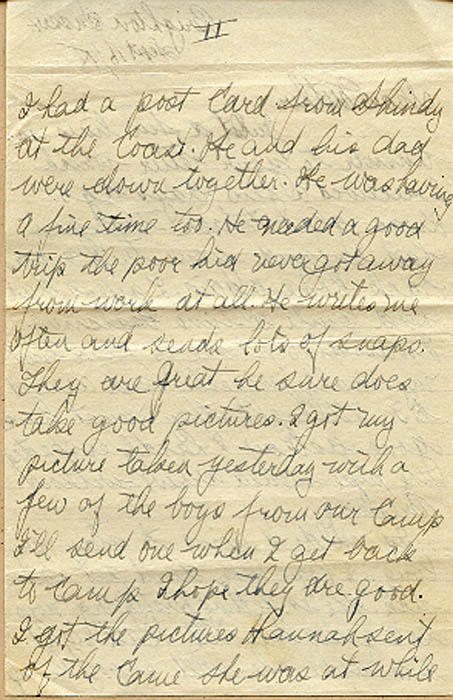 II
I had a post Card from Shindy
at the Coast. He and his dad
were down together. He was having
a fine time too. He needed a good
trip the poor kid never got away
from work at all. He writes me
often and sends lots of snaps.
They are great he sure does
take good pictures. I got my
picture taken yesterday with a
few of the boys from our Camp
I'll send one when I get back
to Camp I hope they are good.
I got the pictures Hannah sent
of the Came she was at while